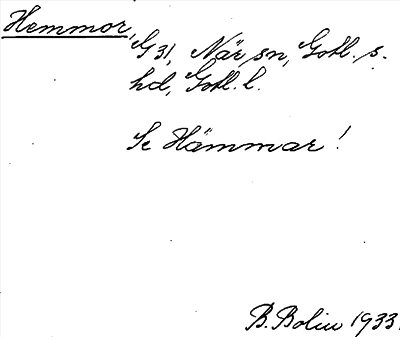 Hemmor,
G 31, När sn, Gotl. s.
hd, Gotl. l.
Se Hämmar!
B. Bolin 1933.